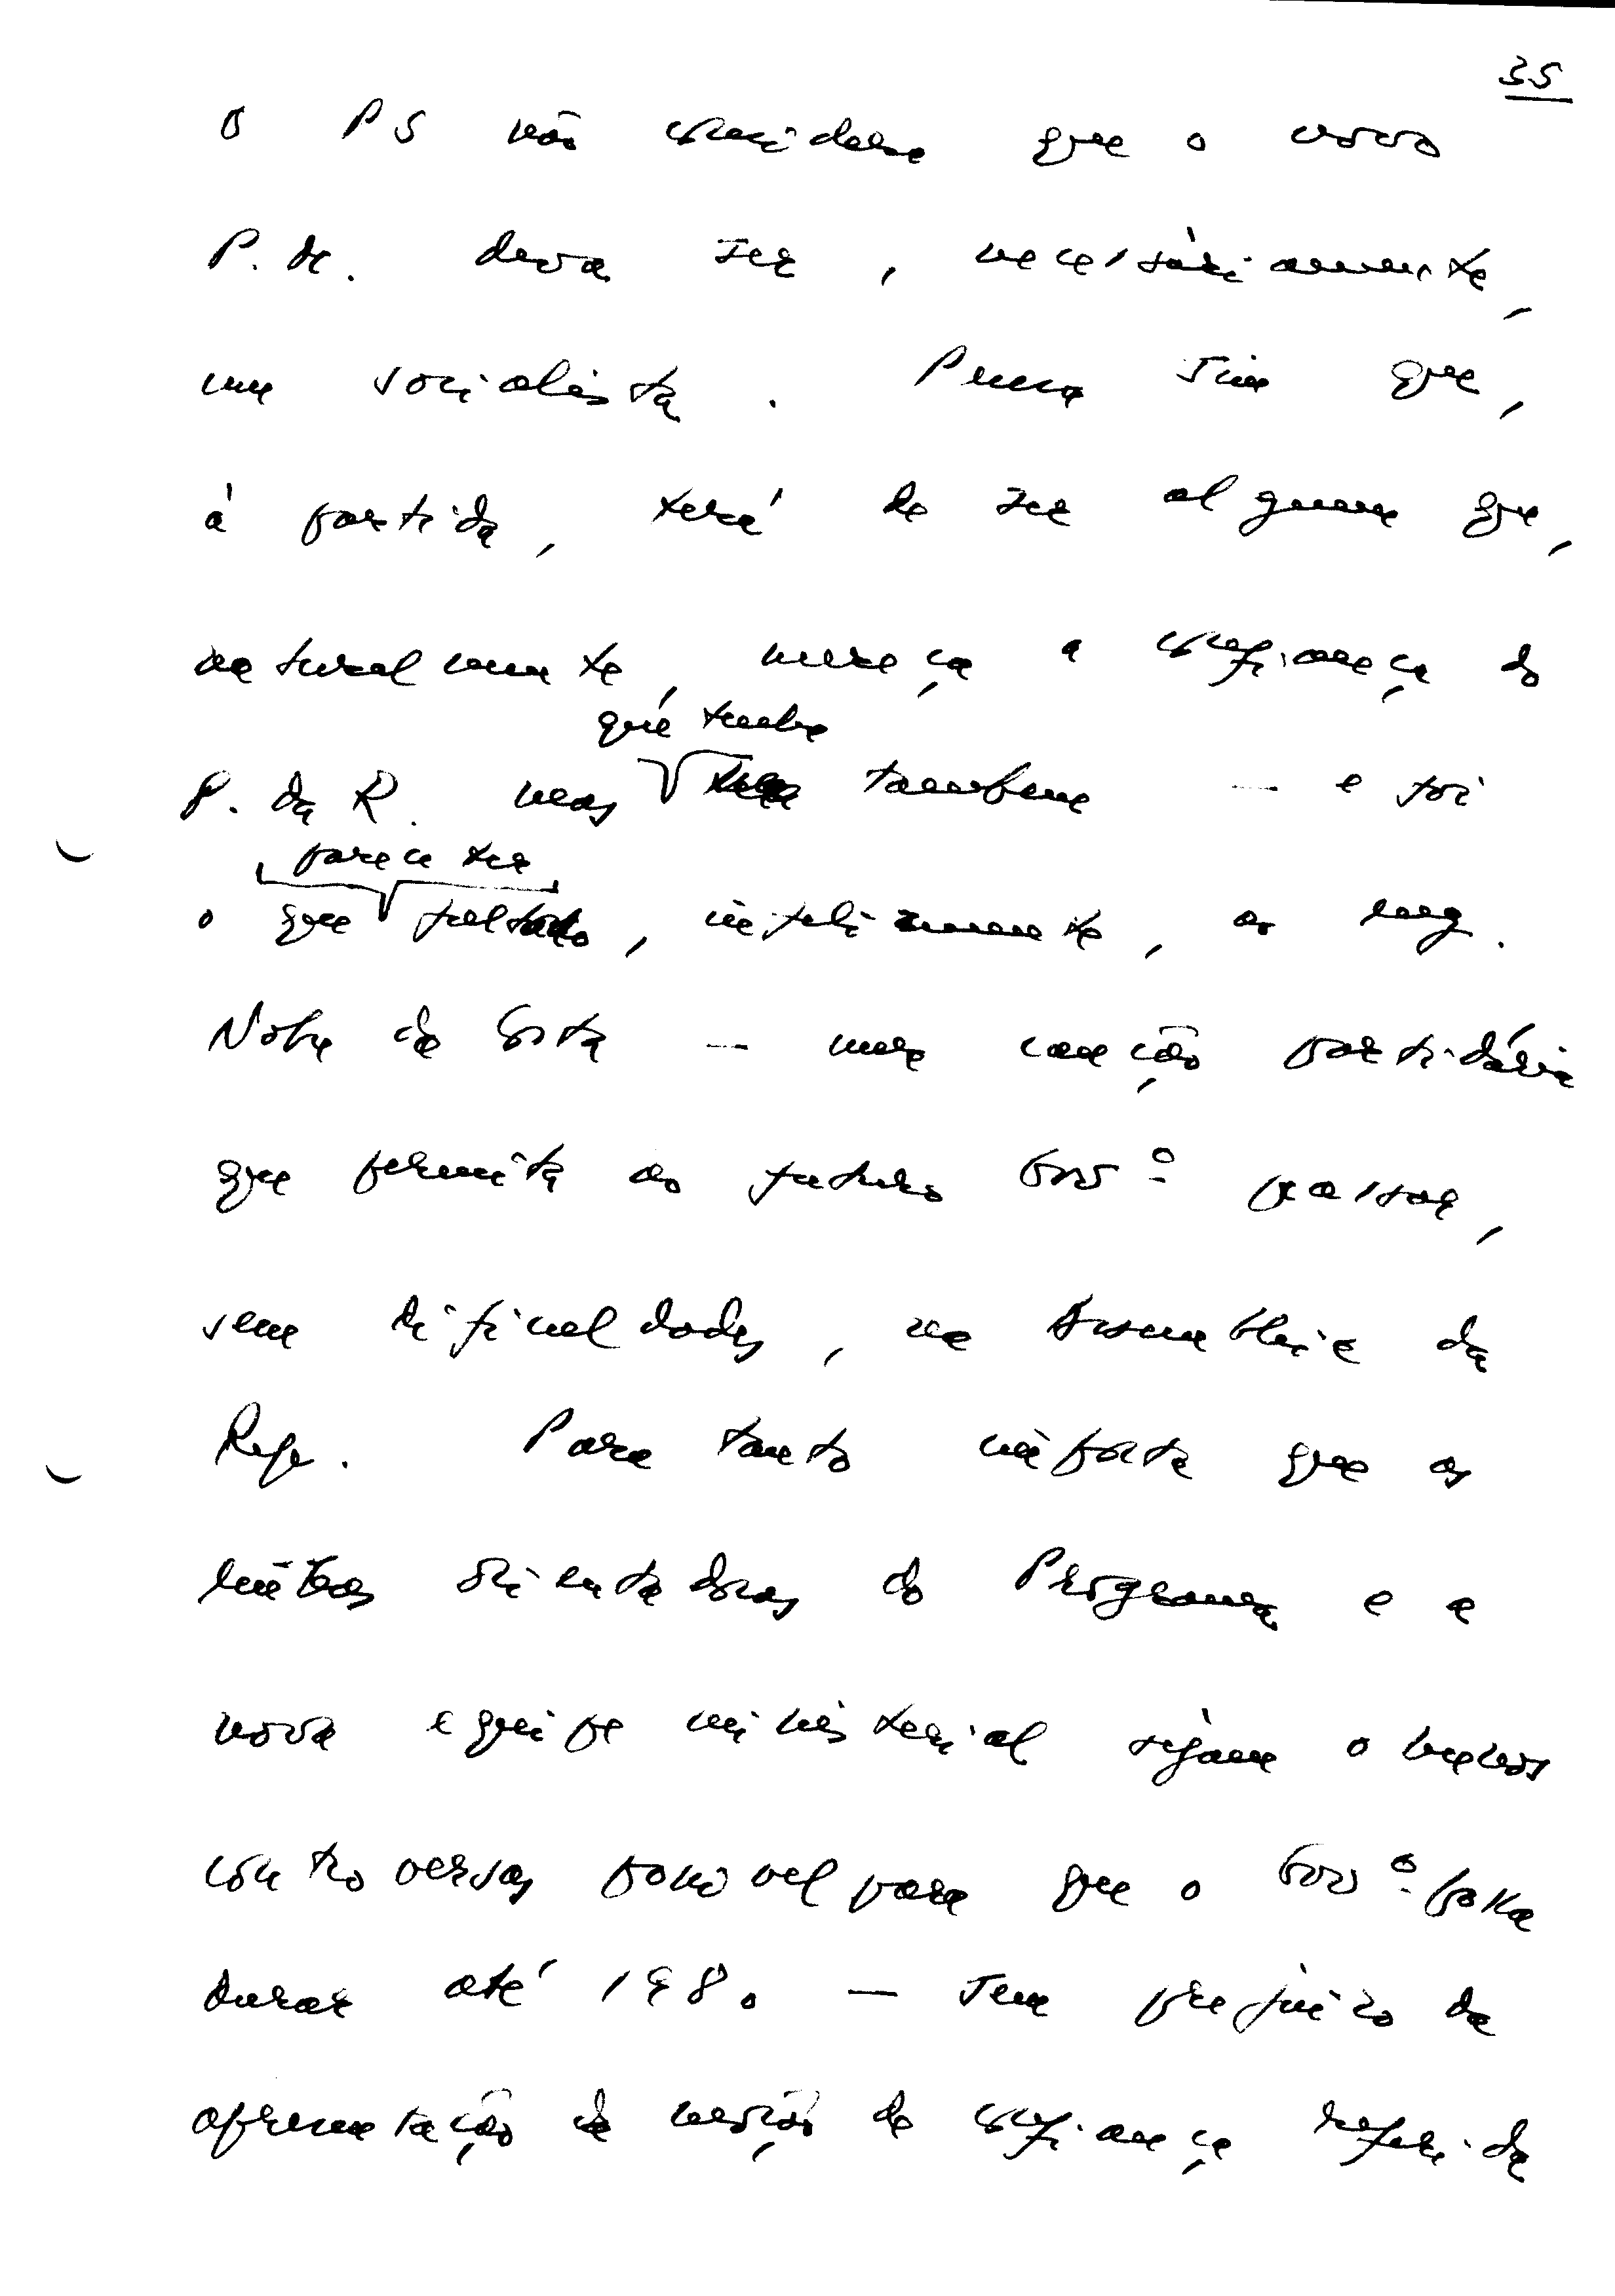 35
O PS não considera que o novo
P. M. deva ser, necessàriamente,
um socialista. Pensa sim que,
à partida, terá de ser alguem que,
naturalmente, mereça a confiança do
que tenha
P. da R. mas também — e foi
parece ter
o que faltado, infelizmente, ao eng.
Nobre da Costa — uma caução partidária
que permita ao futuro Govº passar,
sem dificuldades, na Assembleia da
Rep. Para tanto importa que as
linhas orientadoras do Programa e a
nova equipe ministerial sejam o menos
controversas possível para que o Govº possa
durar até 1980 — sem prejuízo da
apresentação da moção de confiança referida